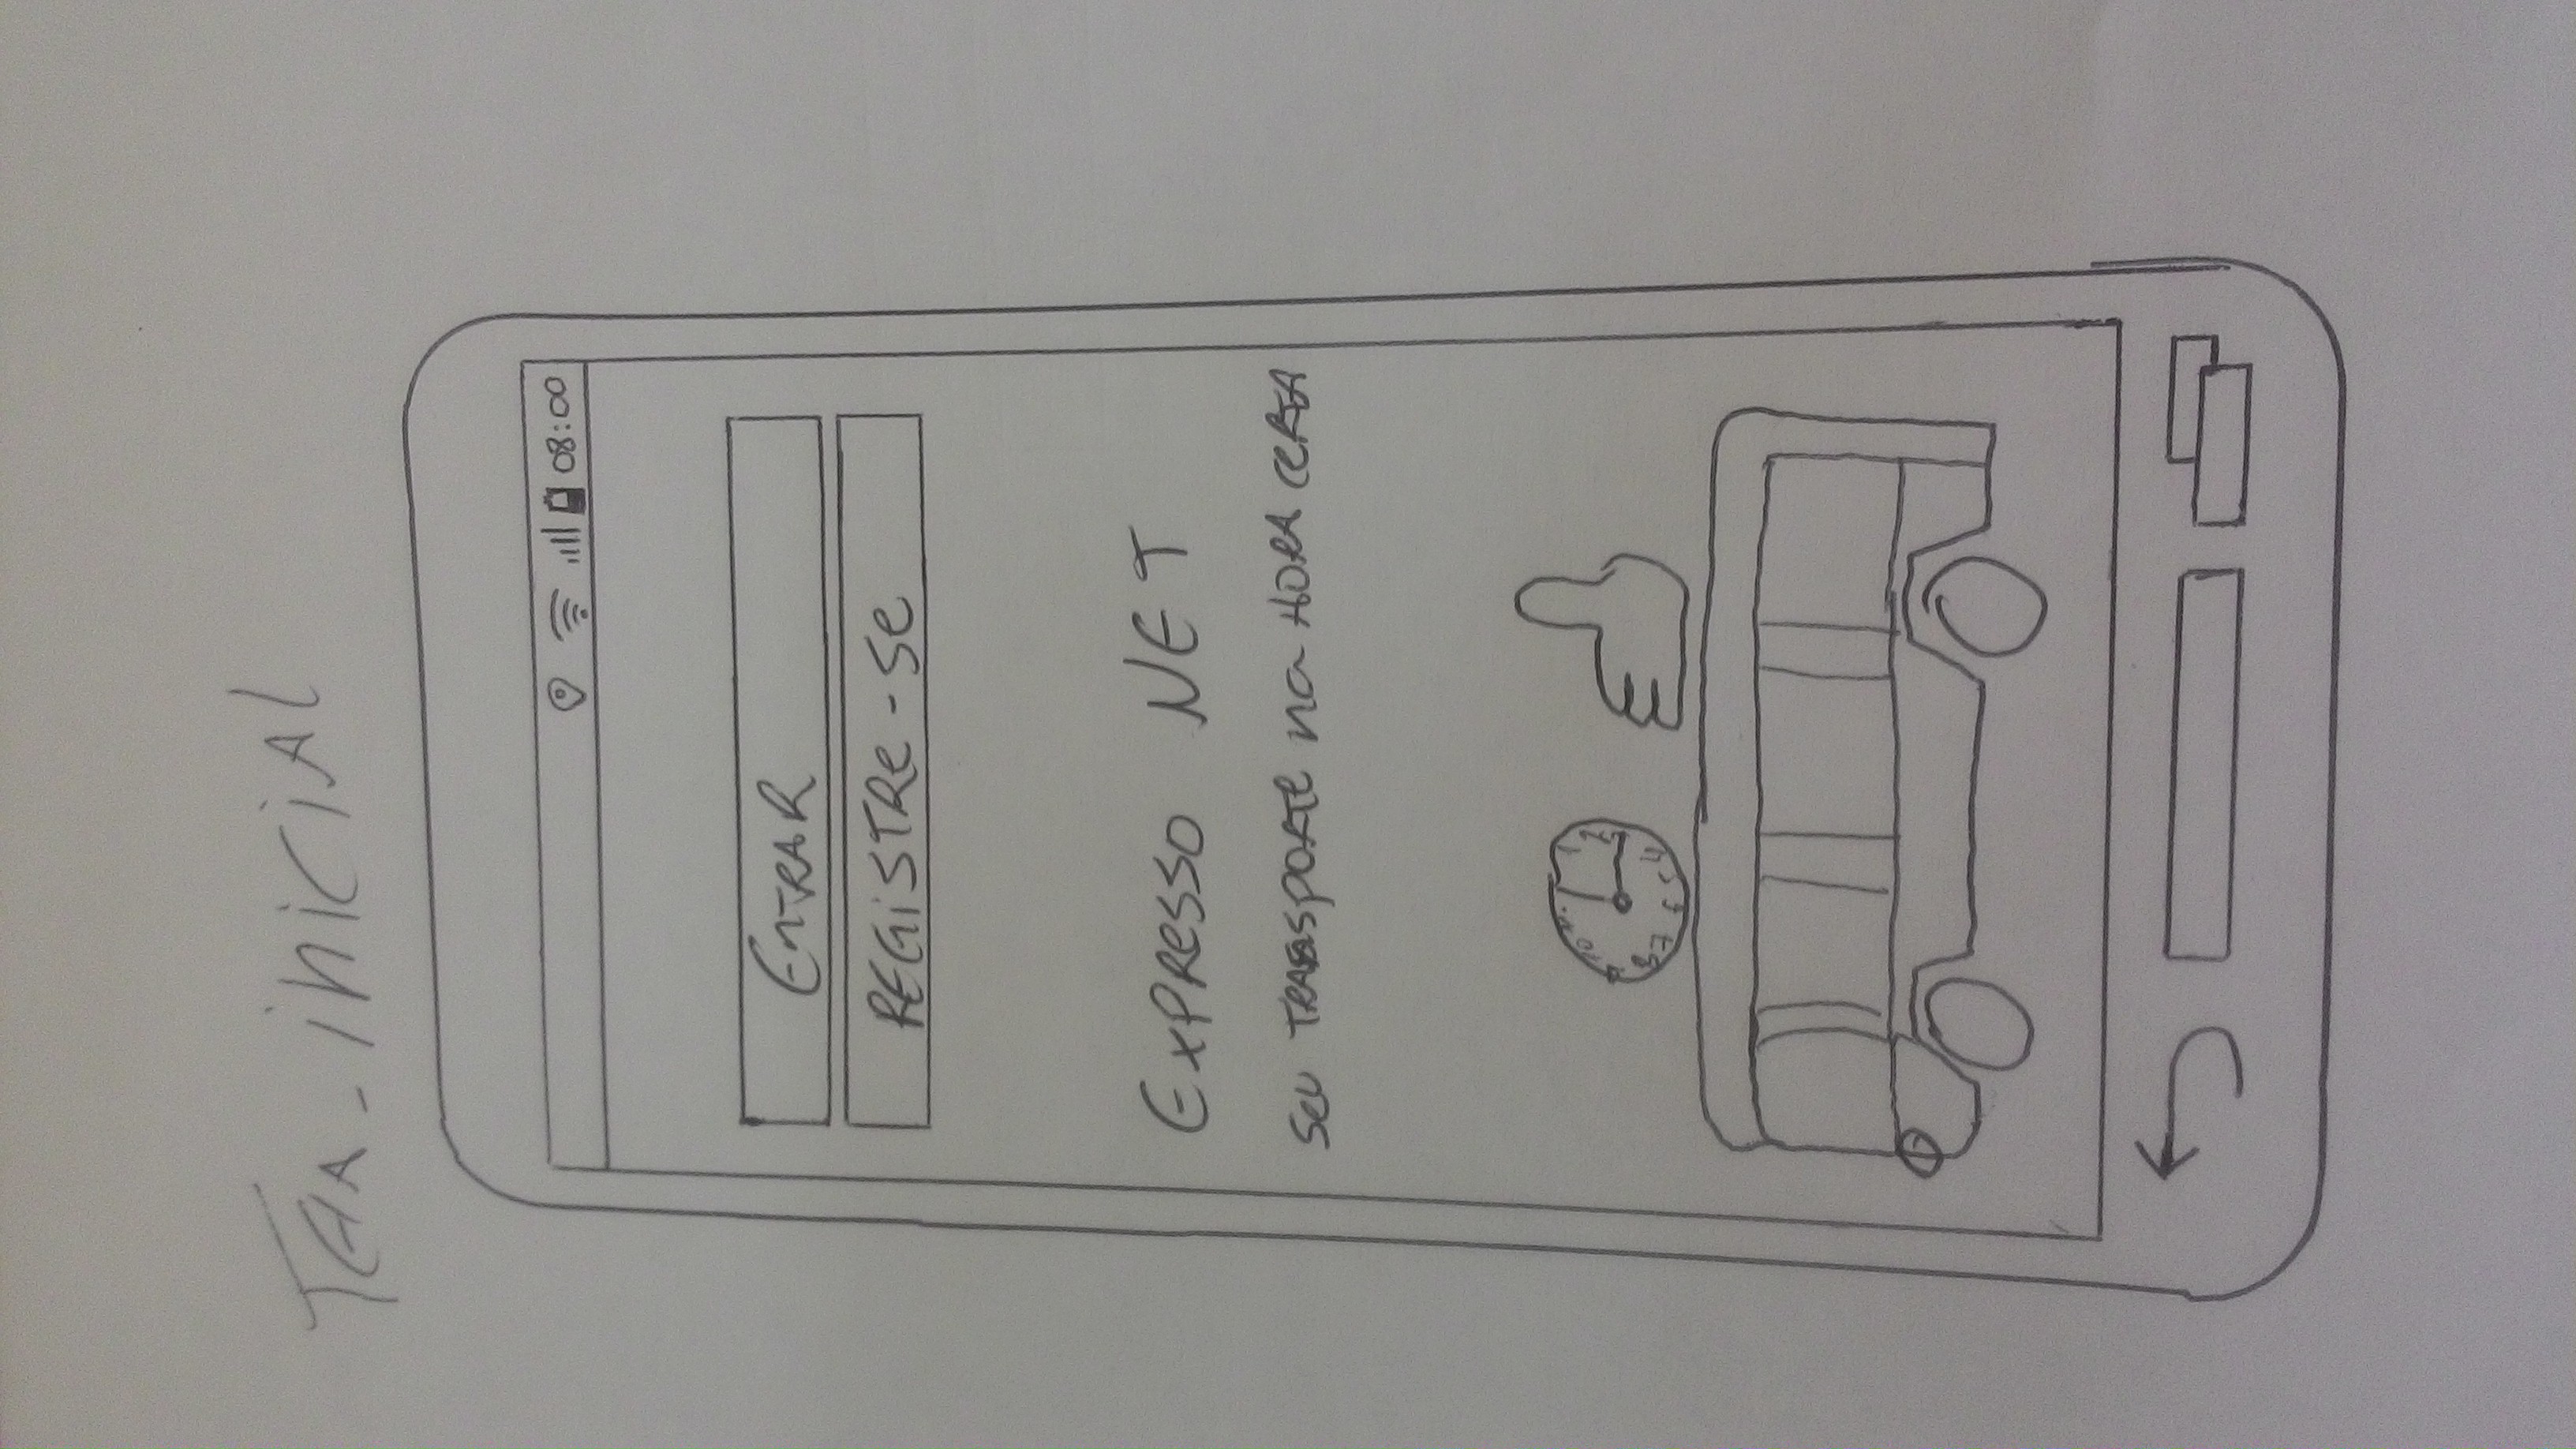 Tela_inicial
08:00
ENTRAR
REGISTRE-SE
EXPRESSO NET
SEU TRANSPORTE NA HORA CERTA
1
2
4
5
6
7
8
10